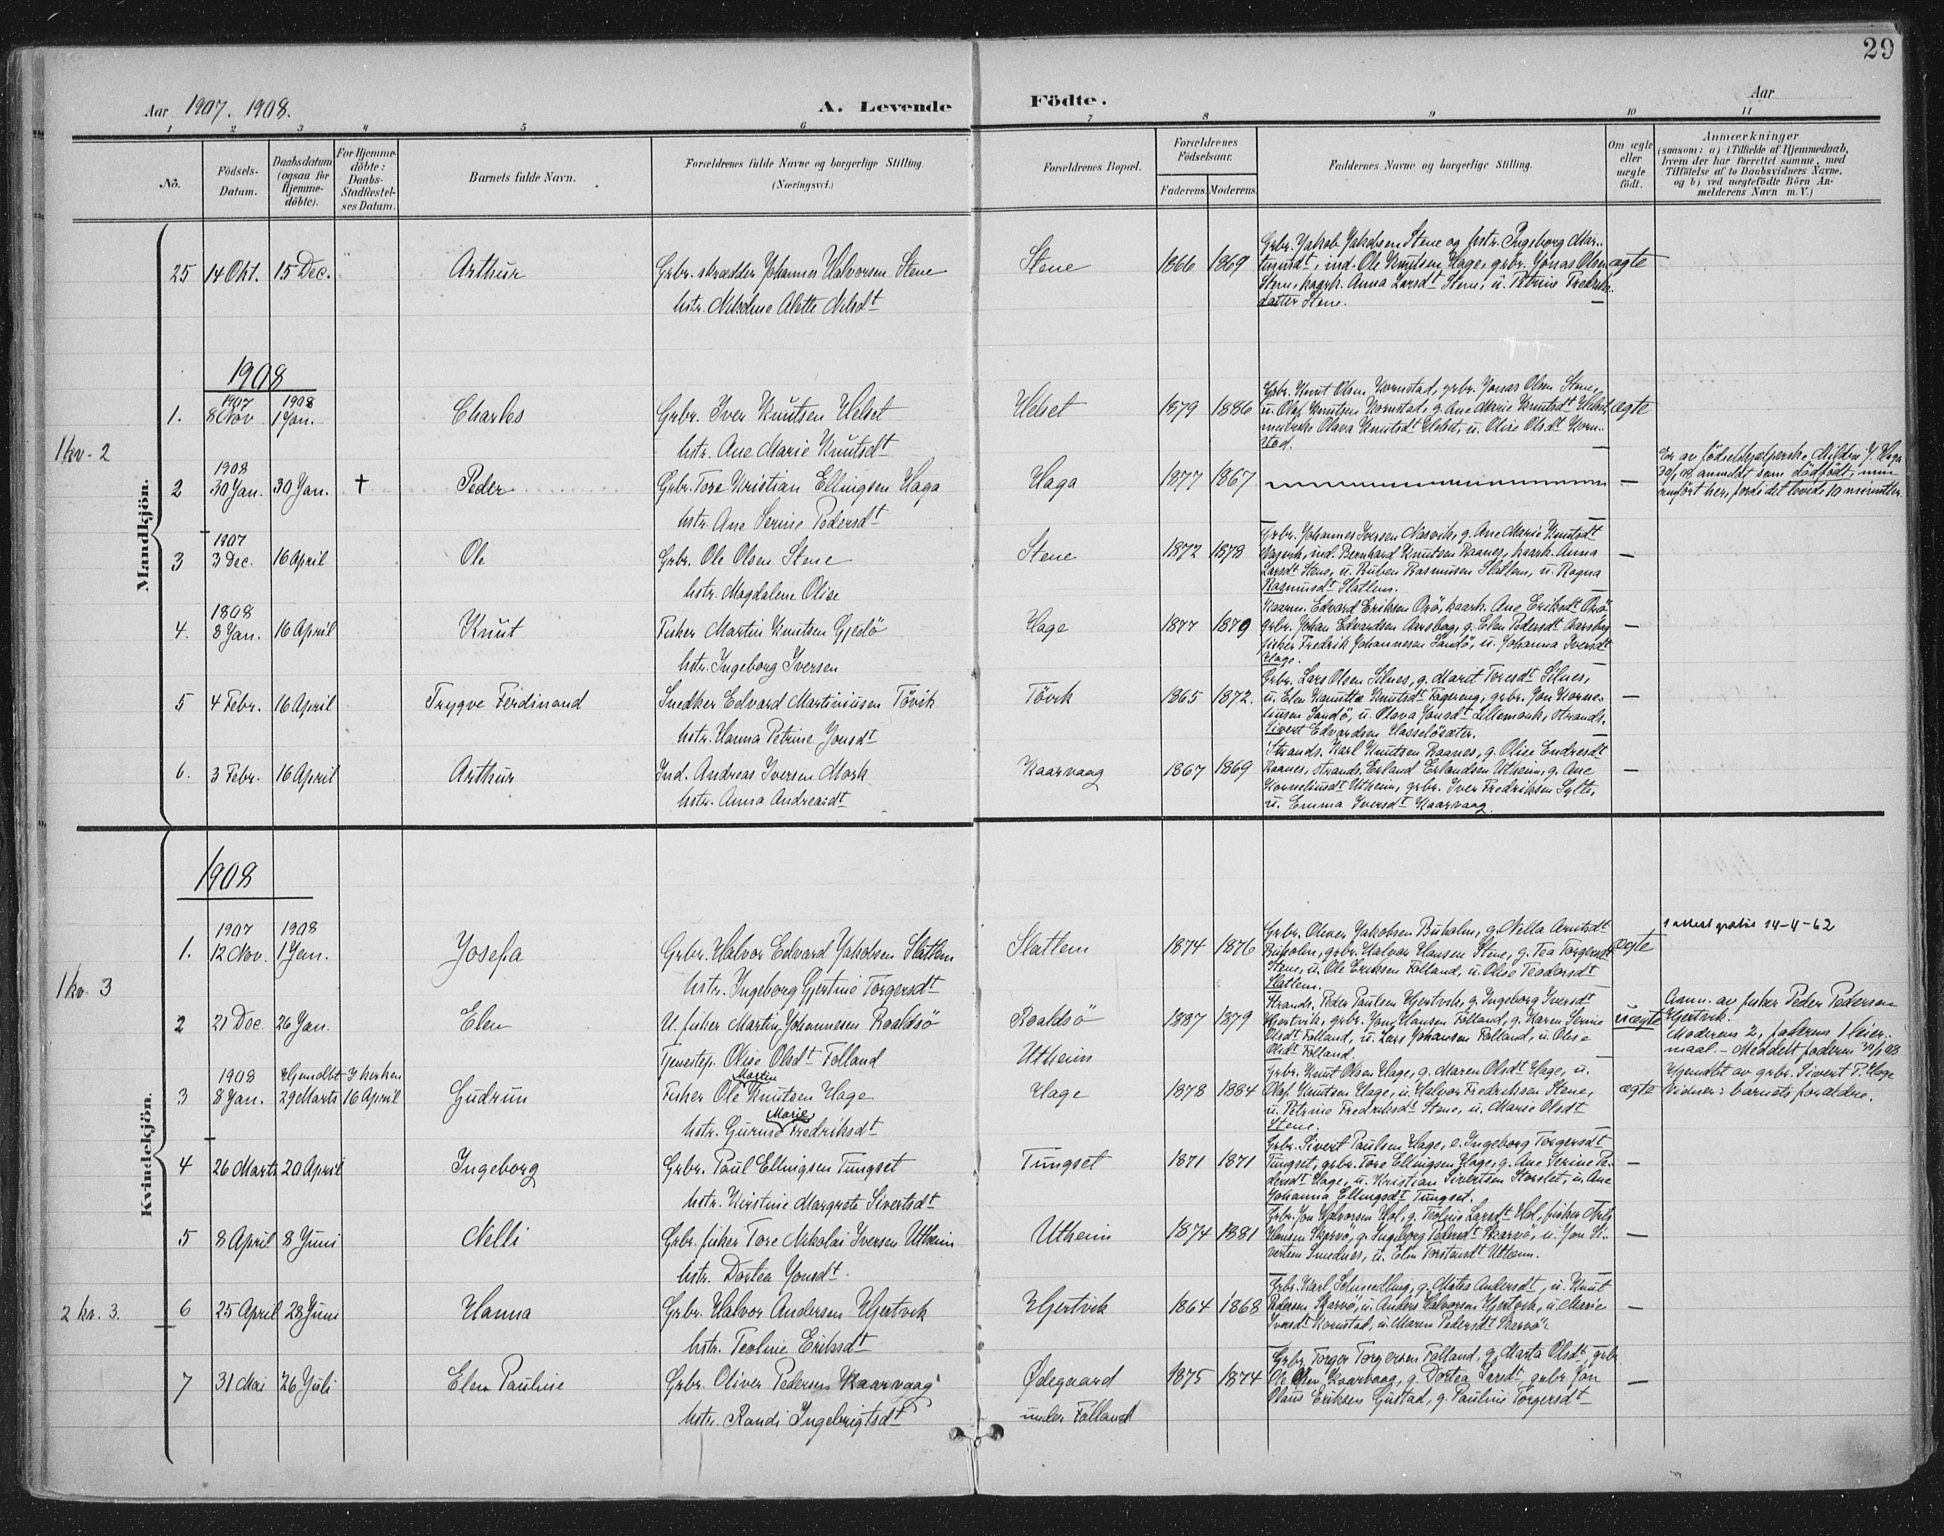 29
Aar 1907. 1908.
A. Levende Födte.
Aar
1 2 3 4 5 6 7 8 9 10 11
No.
Födsels-Datum.
Daabsdatum (ogsaa for Hjemme-döbte).
For Hjemme-döbte: Daabs-Stadfæstel-ses Datum.
Barnets fulde Navn.
Forældrenes fulde Navne og borgerlige Stilling.
(Næringsvei.)
Forældrenes Bopæl.
Forældrenes Födselsaar.
Faderens. Moderens.
Faddernes Navne og borgerlige Stilling.
Om ægte eller uægte födt.
Anmærkninger
(saasom: a) i Tilfælde af Hjemmedaab,
hvem der har forrettet samme, med
Tilföielse af to Daabsvidners Navne,
og b) ved uægtefödte Börn An-
melderens Navn m. V.)
Mandkjön.
25 14 Okt. 15 Dec. Arthur Grbr. skrædder Johannes Halvorsen Stene
hstr. Nilsine Alette Nilsdt
Stene 1866 1869
Grbr. Jakob Jakobsen Stene og hstr. Ingeborg Mar-
tinusdt, ind. Ole Knutsen Hage, grbr. Jonas Olsen
Stene, kaark. Anna Larsdt Stene, u. Petrine Fredriks-
datter Stene.
ægte
1908
1kv. 2
1. 1907 8 Nov 1908 1 Jan. Charles Grbr. Iver Knutsen Helset
hstr. Ane Marie Knutsdt
Helset 1879 1886
Grbr. Knut Olsen Kornstad, grbr. Jonas Olsen Stene,
u. Olaf Knutsen Kornstad, g. Ane Marie Knutsdt Helset,
Olava Knutsdt Helset, u. Olise Olsdt Korn-
stad.
ægte
2 1908 30 Jan. 30 Jan. † Peder Grbr. Tore Kristian Ellingsen Haga
hstr. Ane Serine Pedersdt
Haga 1877 1867 —
Er av födselshjælperske Milda J. Haga
30/1 08 anmeldt som dödfödt, men
anfört her, fordi det levede 10 minutter.
3 1907 3 Dec. 16 April Ole Grbr. Ole Olsen Stene
hstr. Magdalene Olise
Stene 1872 1878
Grbr. Johannes Iversen Næsvik, g. Ane Marie Knutsdt
Næsvik, ind. Bernhard Knutsen Raanes, kaark. Anna
Larsdt Stene, u. Ruben Rasmusen Slatlem, u. Ragna
Rasmusdt Slatlem.
—
4. 1808 8 Jan. 16 April Knut Fisker Martin Knutsen Gjedö
hstr. Ingeborg Iversen
Hage 1877 1879
Kaarm. Edvard Eriksen Orö, kaark. Ane Eriksdt Orö
grbr. Johan Edvardsen Aarsbog, g. Elen Pedersdt Aarsbog
fisker Fredrik Johannesen Sandö, u. Johanna Iversdt
Hage.
—
5 4 Febr. 16 April Trygve Ferdinand Snedker Edvard Martiniusen Tövik
hstr. Hanna Petrine Jonsdt
Tövik 1865 1872.
Grbr. Lars Olsen Silnes, g. Marit Toresdt Silnes,
u. Elen Kanutta Knutsdt Fagereng, grbr. Jon Korne-
liusen Sandö, u. Olava Jonsdt Lillemork, strands.
Sivert Edvardsen Hasselösæter.
—
6. 3 Febr. 16 April Arthur Ind. Andreas Iversen Mork
hstr. Anna Andreasdt
Kaarvaag 1867 1869
Strands. Karl Knutsen Raanes, g. Olise Endresdt
Raanes, strands. Erland Erlandsen Utheim, g. Ane
Korneliusdt Utheim, grbr. Iver Fredriksen Sylte,
u. Emma Iversdt Kaarvaag.
—
Kvindekjön.
1908
1kv. 3
1. 1907 12 Nov. 1908 1 Jan. Josefa Grbr. Halvor Edvard Jakobsen Slatlem
hstr. Ingeborg Gjertine Torgersdt
Slatlem 1874 1876
Grbr. Oliver Jakobsen Buholm, g. Nella Arntsdt
Buholm, grbr. Halvor Hansen Stene, g. Tea Torgersdt
Stene, u. Ole Eriksen Folland, u. Olise Teodorsdt
Slatlem.
ægte
1 attest gratis 14-4-62
2 21 Dec. 26 Jan. Elen U. fisker Martin Johannesen Roaldsö
Tjenestep. Olise Olsdt Folland
Roaldsö
Utheim
1887 1879
Strands. Peder Paulsen Hjertvik, g. Ingeborg Iversdt
Hjertvik, grbr. Jon Hansen Folland, g. Karen Serine
Olsdt Folland, u. Lars Johansen Folland, u. Olise
Olsdt Folland.
uægte
Anm. av fisker Peder Pedersen
Hjertvik.
Moderens 2, faderens 1 leier-
maal. - Meddelt faderen 30/1 08
3 1908 8 Jan. Hjemdbt 29 Marts I kirken 16 April Gudrun Fisker Ole Martin Knutsen Hage
hstr. Gurine Marie Fredriksdt
Hage 1878 1884
Grbr. Knut Olsen Hage, g. Maren Olsdt Hage, u.
Olaf Knutsen Hage, u. Halvor Fredriksen Stene,
u. Petrine Fredriksdt Stene, u. Marie Olsdt
Stene.
ægte
Hjemdbt av grbr. Sivert P. Hage
Vidner: barnets forældre.
4 26 Marts 20 April Ingeborg Grbr. Paul Ellingsen Tungset
hstr. Kirstine Margrete Sivertsdt
Tungset 1871 1871
Grbr. Sivert Paulsen Hage, e. Ingeborg Torgersdt
Tungset, grbr. Tore Ellingsen Hage, g. Ane Serine Pe-
dersdt Hage, u. Kristian Sivertsen Storslet, u. Ane
Johanna Ellingsdt Tungset.
—
5 8 April 8 Juni Nelli Grbr. fisker Tore Nikolai Iversen Utheim
hstr. Dortea Jonsdt.
Utheim 1874 1881
Grbr. Jon Halvorsen Hol, g. Teoline Larsdt Hol, fisker Nils
Hansen Skarvö, g. Ingeborg Pedersdt Skarvö, u. Jon Si-
vertsen Smednes, u. Elen Torstensdt Utheim.
—
2 kv. 3.
6 25 April 28 Juni Hanna Grbr. Halvor Andersen Hjertvik
hstr. Teoline Eriksdt
Hjertvik 1864 1868
Grbr. Karl Schmedling, g. Mates Andersdt, u. Knut
Pedersen Skarvö, u. Anders Halvorsen Hjertvik, u. Marie
Iversdt Kornstad, u. Maren Pedersdt Skarvö.
—
7 31 Mai 26 Juli Elen Pauline Grbr. Oliver Pedersen Kaarvaag
hstr. Randi Ingebrigtsdt
Ødegaard
under Folland
1875 1874
Grbr. Torger Torgersen Folland, g. Marta Olsdt, grbr.
Ole Olsen Kaarvaag, g. Dortea Larsdt, grbr. Jon
Olaus Eriksen Gustad, g. Pauline Torgersdt
—